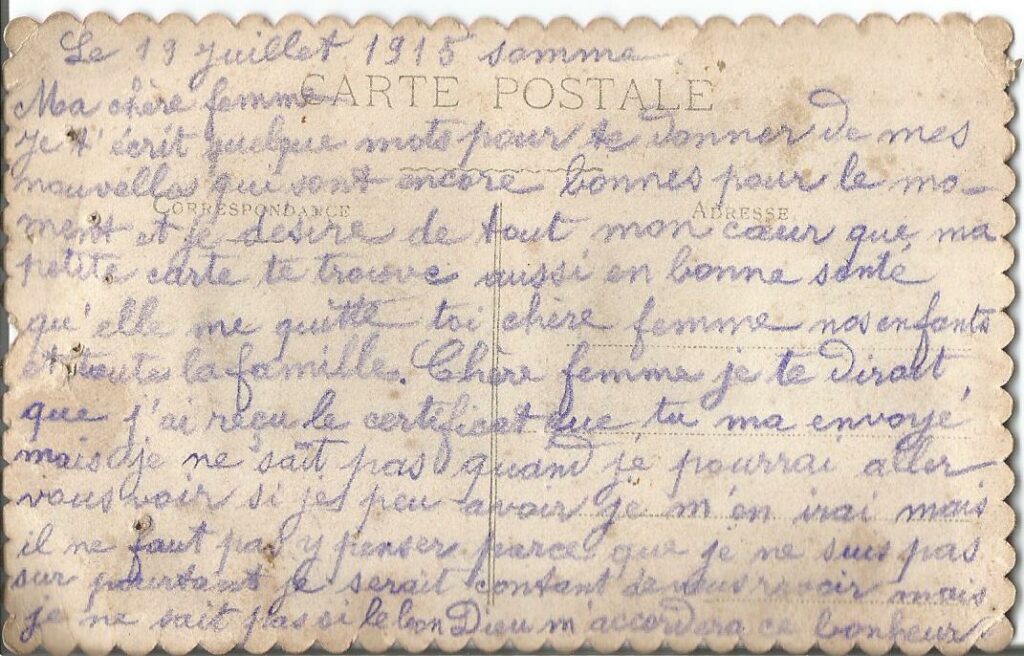 Le 19 juillet 1915 somme.
CARTE POSTALE
Ma chère femme
Je t'écrit quelque mots pour te donner de mes
nouvelles qui sont encore bonnes pour le mo-
CORRESPONDANCE
ADRESSE
ment et je desire de tout mon cœur que ma
petite carte te trouve aussi en bonne santé
qu'elle me quitte toi chère femme nos enfants
et toute la famille. Chère femme je te dirait
que j'ai reçu le certificat que tu ma envoyé
mais je ne sait pas quand je pourrai aller
vous voir si je peu avoir je m'en irai mais
il ne faut pas y penser parce que je ne suis pas
sur pourtant je serait contant de vous revoir mais
je ne sait pas si le bon Dieu m'accordera ce bonheur